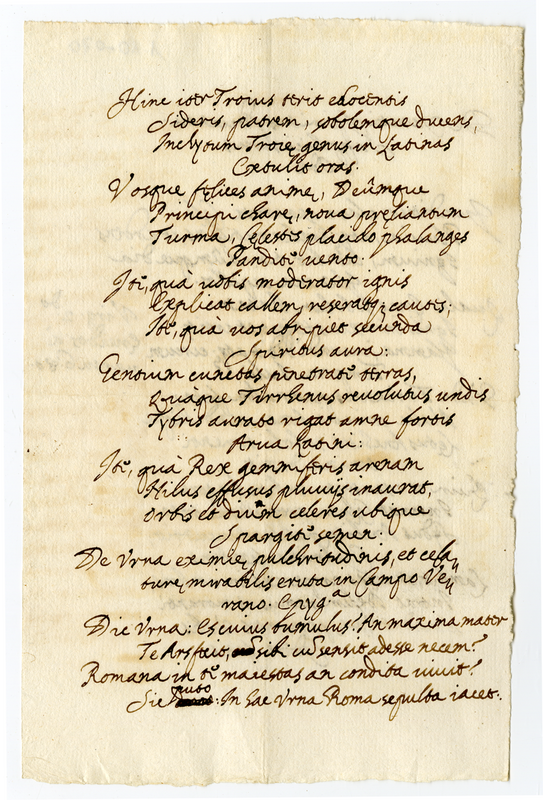 Hinc iter Troius terit edocentis
Sideris, patrem, sobolemque ducens,
Inclytum Troię genus in Latinas
Extulit oras.
Vosque fęlices animę, Deûmque
Principi charę, nova pręliantum
Turma, Cęlestes placido phalanges
Pandite vento.
Ite, quà vobis moderator ignis
Explicat callem, reseratq; cautes;
Ite, quà vos abripiet secunda
Spiritus aura:
Gentium cunctas penetrate terras,
Quàque Tirrhenus revolutus undis
Tybris aurato rigat amne fortis
Arva Latini:
Ite, quà Rex gemmiferis arenam
Nilus effusus pluviis inaurat,
Orbis et divûm celeres ubique
Spargite semen.
De Vrna eximię pulchritudinis, et cęla„
turę mirabilis eruta in Campo Ve„
rano. Epyg.ª
Dic Vrna: Es cuius tumulus? An maxima mater
Te Ars fecit, sibi cū sensit adesse necem?
Romana in te maiestas an condita vivit?
Sic puto: In hac Vrna Roma sepulta iacet.